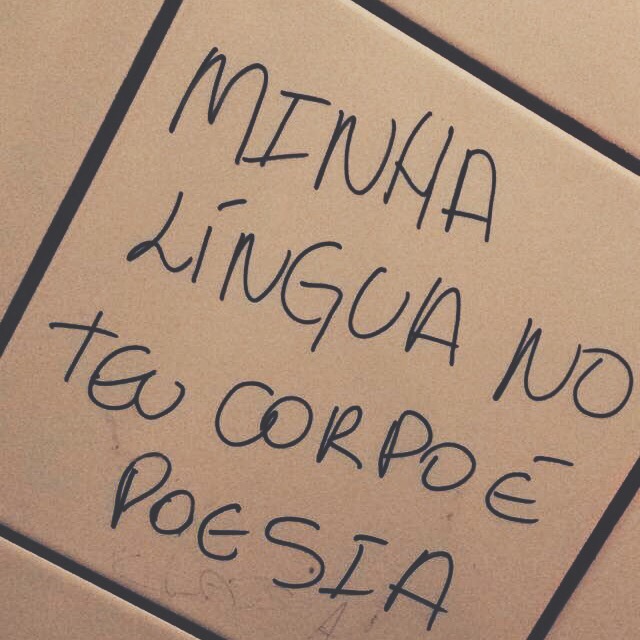 MINHA
LÍNGUA NO
TEU CORPO É
POESIA